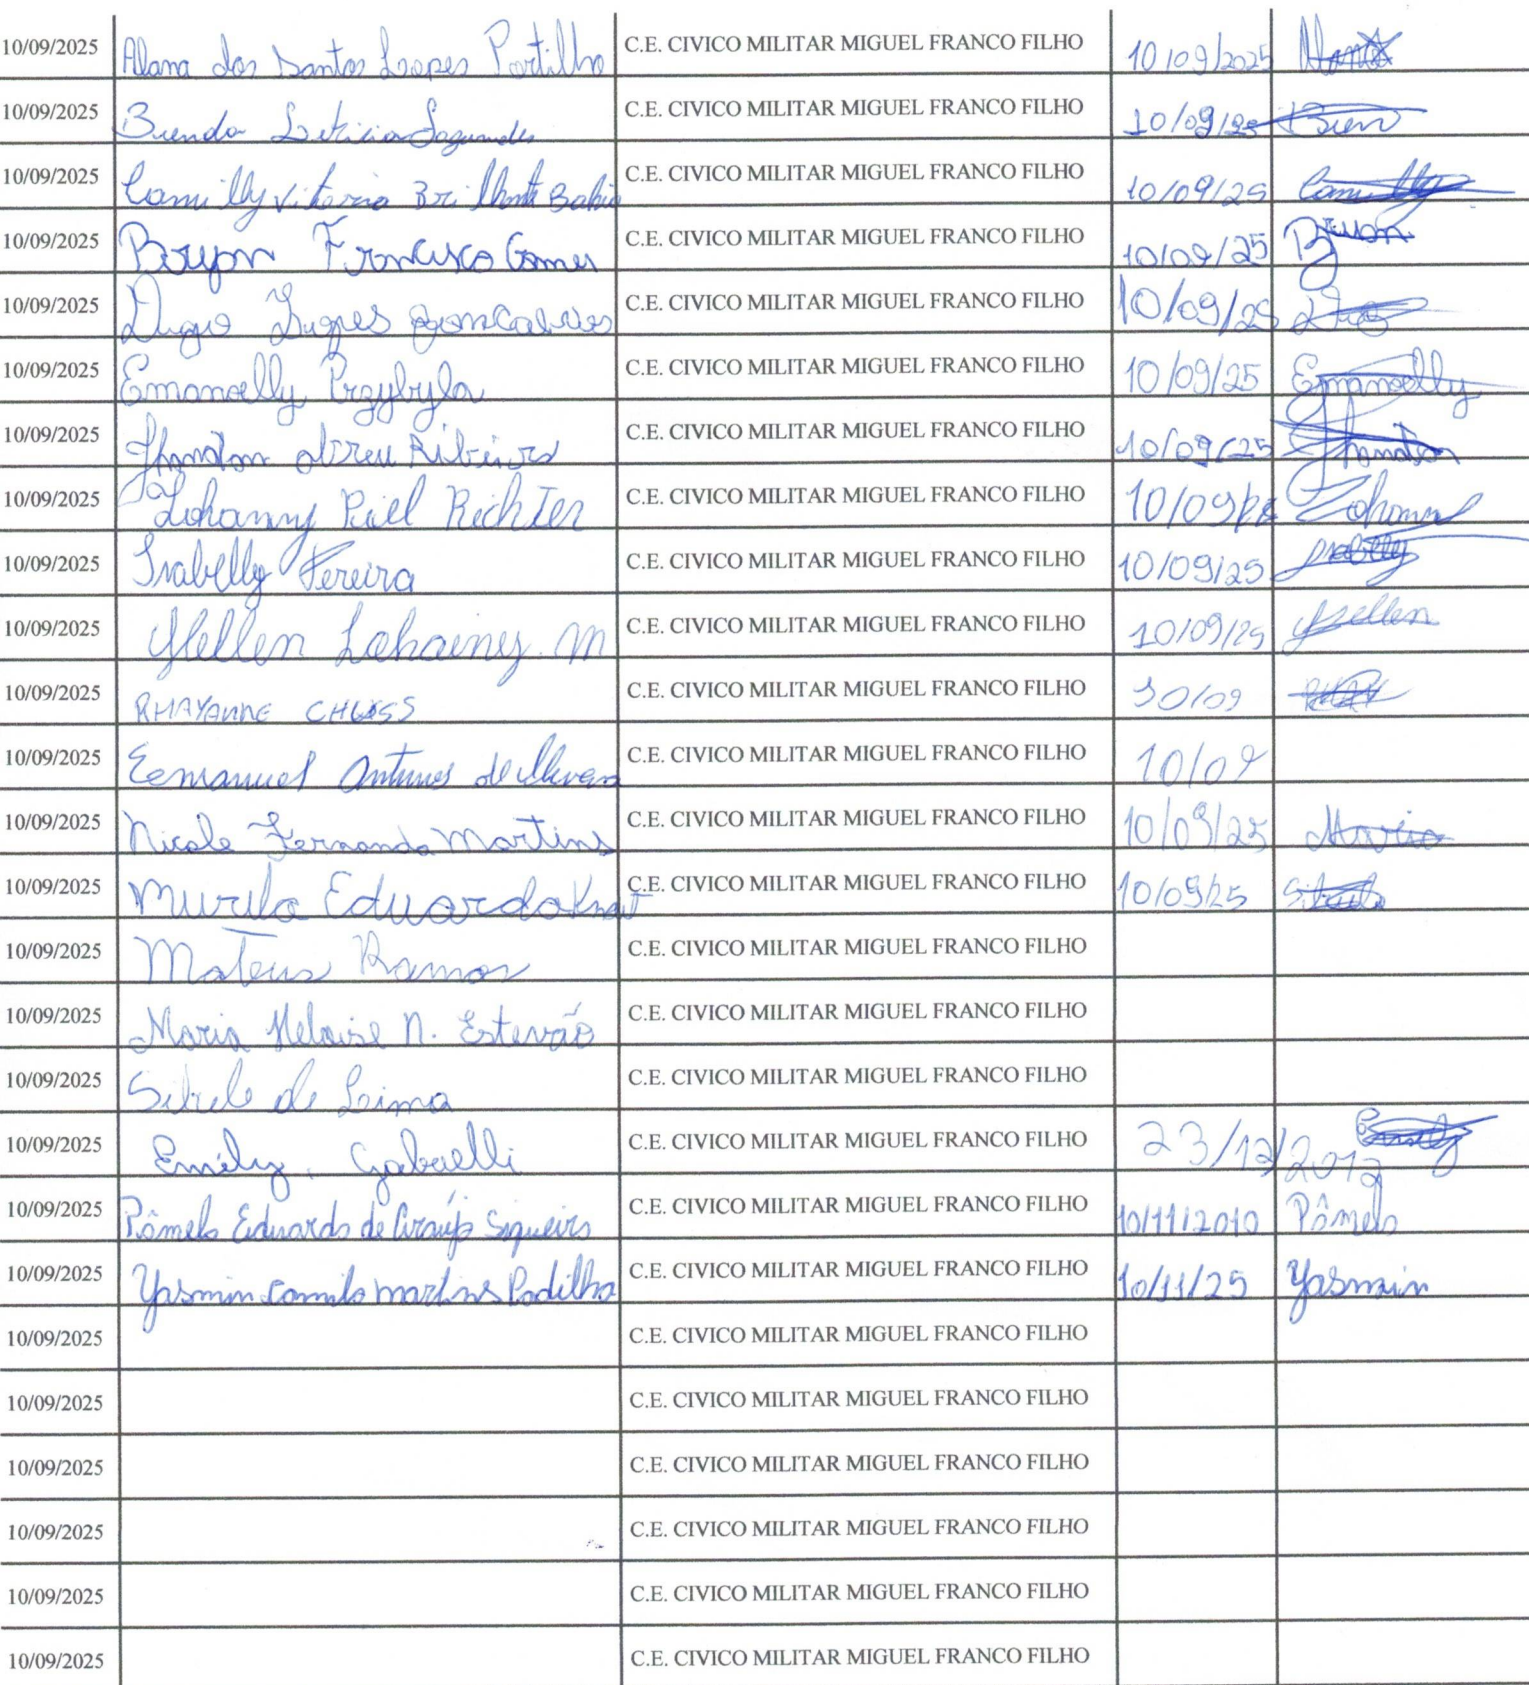 10/09/2025 Alana dos Santos Lopes Portilho C.E. CIVICO MILITAR MIGUEL FRANCO FILHO 10/09/2025 Alana
10/09/2025 Brenda Leticia Fagundes C.E. CIVICO MILITAR MIGUEL FRANCO FILHO 10/09/25 Bren
10/09/2025 Camilly Vitoria Brilhante Bahia C.E. CIVICO MILITAR MIGUEL FRANCO FILHO 10/09/25 Camilly
10/09/2025 Bryon Francisco Gomes C.E. CIVICO MILITAR MIGUEL FRANCO FILHO 10/09/25 Bryon
10/09/2025 goncalves C.E. CIVICO MILITAR MIGUEL FRANCO FILHO 10/09/25
10/09/2025 Emanoelly Przybyla C.E. CIVICO MILITAR MIGUEL FRANCO FILHO 10/09/25 Emanoelly
10/09/2025 Jhonaton abreu Ribeiro C.E. CIVICO MILITAR MIGUEL FRANCO FILHO 10/09/25 Jhonaton
10/09/2025 Lohanny Riel Richter C.E. CIVICO MILITAR MIGUEL FRANCO FILHO 10/09/ Lohanny
10/09/2025 Isabelly Pereira C.E. CIVICO MILITAR MIGUEL FRANCO FILHO 10/09/25 Isabelly
10/09/2025 Hellen Lohainy. M C.E. CIVICO MILITAR MIGUEL FRANCO FILHO 10/09/25 Hellen
10/09/2025 RHAYANNE C.E. CIVICO MILITAR MIGUEL FRANCO FILHO 10/09
10/09/2025 Emanuel Antunes de Oliveira C.E. CIVICO MILITAR MIGUEL FRANCO FILHO 10/09
10/09/2025 Nicole Fernanda Martins C.E. CIVICO MILITAR MIGUEL FRANCO FILHO 10/09/25 Maria
10/09/2025 Murilo Eduardo C.E. CIVICO MILITAR MIGUEL FRANCO FILHO 10/09/25
10/09/2025 Mateus Ramos C.E. CIVICO MILITAR MIGUEL FRANCO FILHO
10/09/2025 Maria Heloise N. Estevão C.E. CIVICO MILITAR MIGUEL FRANCO FILHO
10/09/2025 de Lima C.E. CIVICO MILITAR MIGUEL FRANCO FILHO
10/09/2025 Emily. Gabrielli C.E. CIVICO MILITAR MIGUEL FRANCO FILHO 23/12/2012 Emily
10/09/2025 Pâmela Eduarda de Araújo Siqueira C.E. CIVICO MILITAR MIGUEL FRANCO FILHO 10/11/2010 Pâmela
10/09/2025 Yasmin camila martins Padilha C.E. CIVICO MILITAR MIGUEL FRANCO FILHO 10/11/25 Yasmin
10/09/2025 C.E. CIVICO MILITAR MIGUEL FRANCO FILHO
10/09/2025 C.E. CIVICO MILITAR MIGUEL FRANCO FILHO
10/09/2025 C.E. CIVICO MILITAR MIGUEL FRANCO FILHO
10/09/2025 C.E. CIVICO MILITAR MIGUEL FRANCO FILHO
10/09/2025 C.E. CIVICO MILITAR MIGUEL FRANCO FILHO
10/09/2025 C.E. CIVICO MILITAR MIGUEL FRANCO FILHO